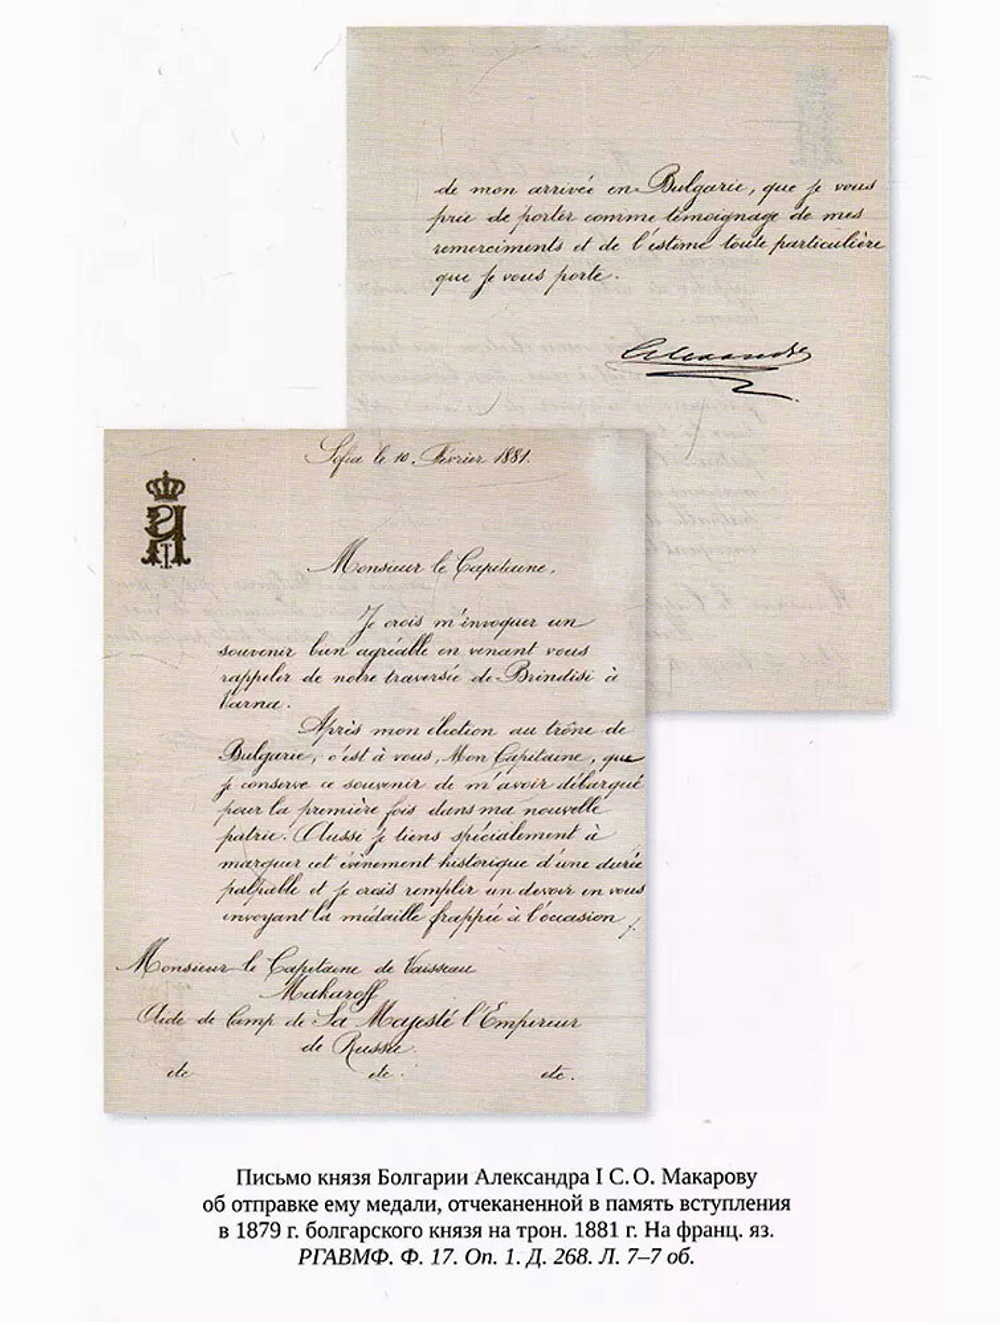 de mon arrivée en Bulgarie, que je vous
prie de porter comme témoignage de mes
remerciments et de l'estime toute particulière
que je vous porte.
Alexandre
Sofia le 10. Février 1881.
Monsieur le Capitaine,
Je crois m'invoquer un
souvenir bien agréable en venant vous
rappeler de notre traversée de Brindisi à
Varna.
Après mon élection au trône de
Bulgarie, c'est à vous, Mon Capitaine, que
je conserve ce souvenir de m'avoir débarqué
pour la première fois dans ma nouvelle
patrie. Aussi je tiens spécialement à
marquer cet évènement historique d'une durée
palpable et je crois remplir un devoir en vous
envoyant la médaille frappée à l'occasion
Monsieur le Capitaine de Vaisseau
Makaroff
Aide de Camp de Sa Majesté l'Empereur
de Russie.
etc etc. etc.
Письмо князя Болгарии Александра I С. О. Макарову
об отправке ему медали, отчеканенной в память вступления
в 1879 г. болгарского князя на трон. 1881 г. На франц. яз.
РГАВМФ. Ф. 17. Оп. 1. Д. 268. Л. 7–7 об.